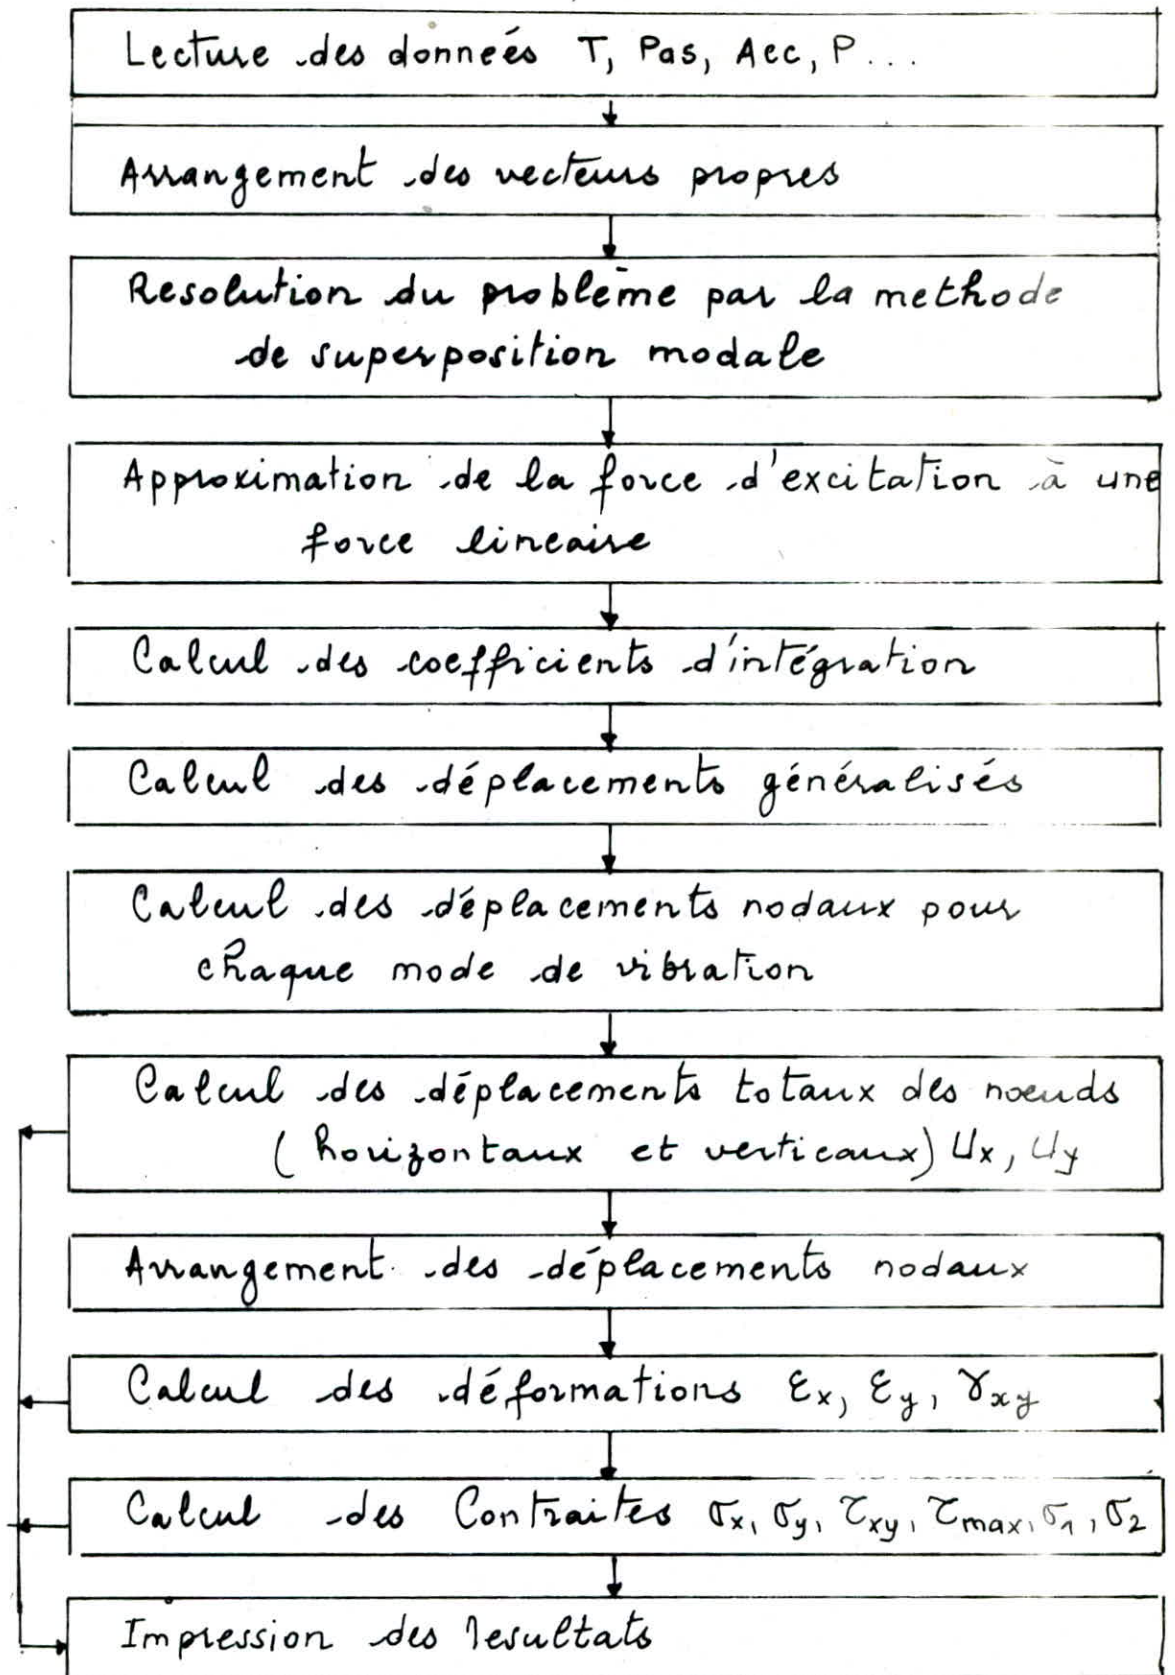 Lecture des données T, Pas, Acc, P...
Arrangement des vecteurs propres
Resolution du problème par la methode
de superposition modale
Approximation de la force d'excitation à une
force lineaire
Calcul des coefficients d'intégration
Calcul des déplacements généralisés
Calcul des déplacements nodaux pour
chaque mode de vibration
Calcul des déplacements totaux des nœuds
(horizontaux et verticaux) Ux, Uy
Arrangement des déplacements nodaux
Calcul des déformations εx, εy, γxy
Calcul des Contraites σx, σy, τxy, τmax, σ1, σ2
Impression des resultats